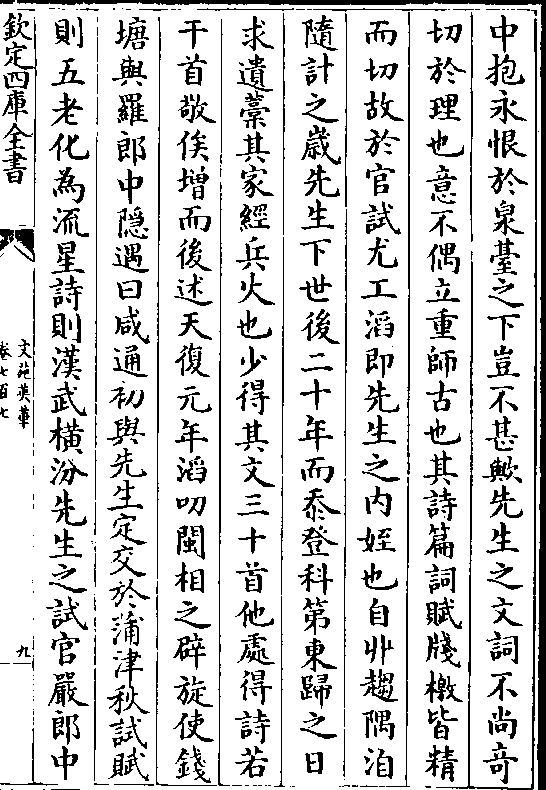 中抱永恨於泉臺之下豈不甚歟先生之文詞不尚竒
切於理也意不偶立重師古也其詩篇詞賦牋檄皆精
而切故於官試尤工滔即先生之内姪也自丱趨隅洎
隨計之歲先生下世後二十年而忝登科第東歸之日
求遺藁其家經兵火也少得其文三十首他處得詩若
干首敬俟增而後述天復元年滔叨閩相之辟旋使錢
塘與羅郎中隱遇曰咸通初與先生定交於蒲津秋試賦
則五老化為流星詩則漢武橫汾先生之試官嚴郎中
欽定四庫全書
文苑英華
卷七百七
九